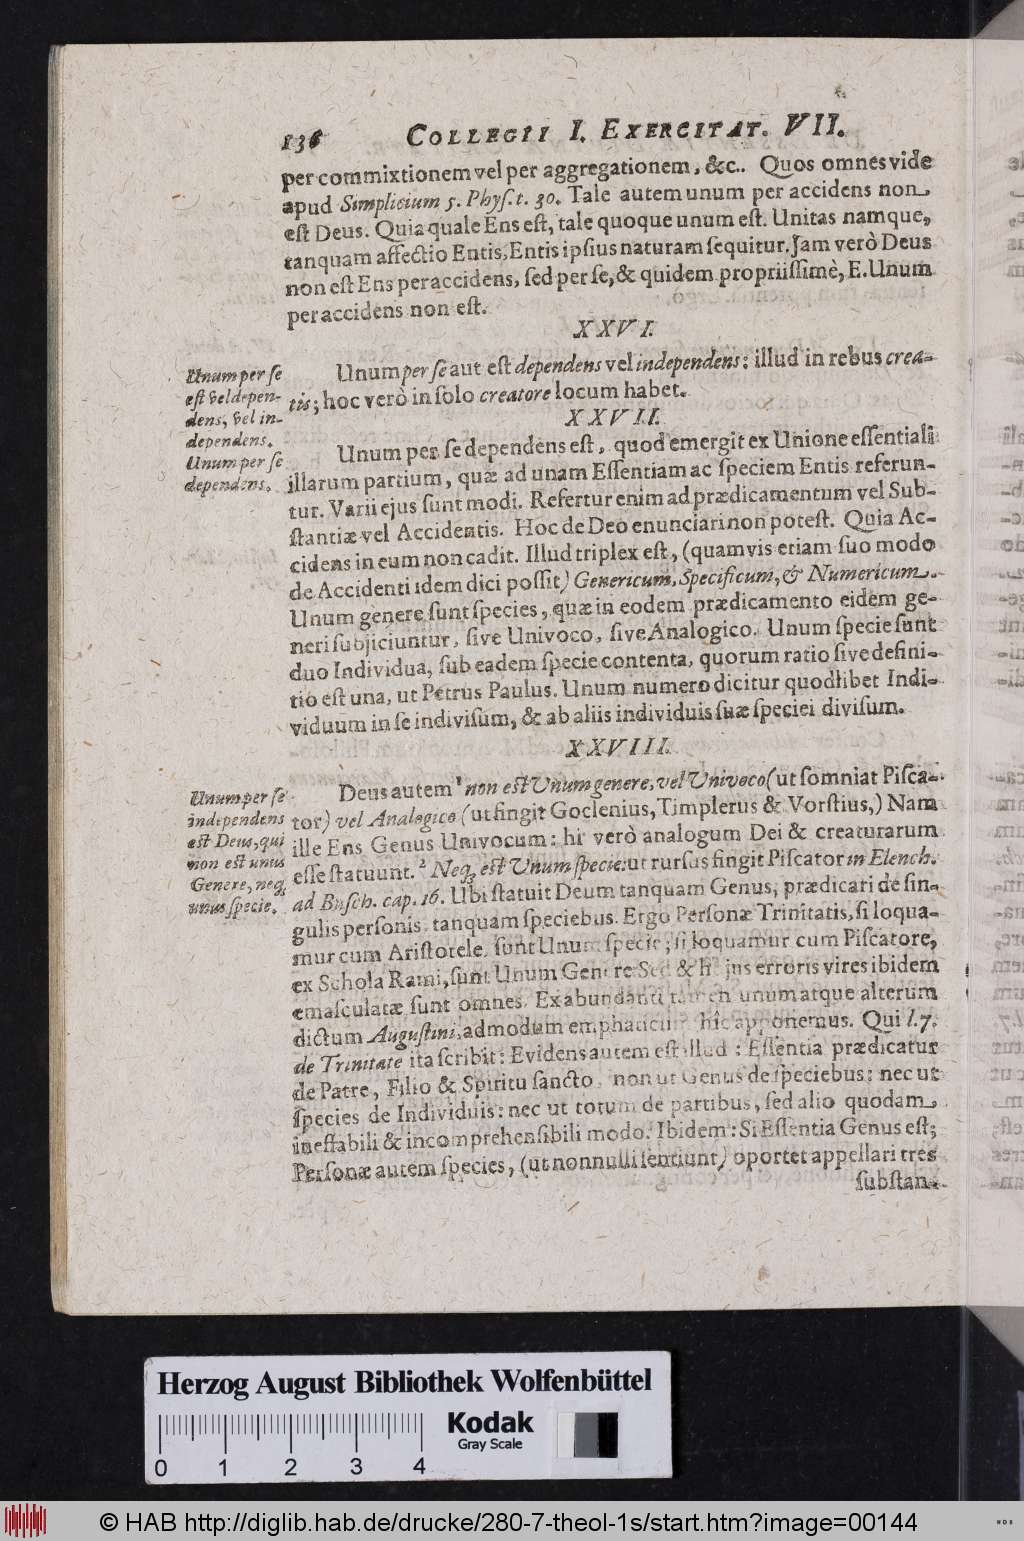 136 COLLEGII I. EXERCITAT. VII.
per commixtionem vel per aggregationem, &c.. Quos omnes vide
apud Simplicium 5. Phyſ. t. 30. Tale autem unum per accidens non
eſt Deus. Quia quale Ens eſt, tale quoque unum eſt. Unitas namque,
tanquam affectio Entis, Entis ipſius naturam ſequitur. Jam verò Deus
non eſt Ens per accidens, ſed per ſe, & quidem propriiſſimè, E. Unum
per accidens non eſt.
XXVI.
Unum per ſe aut eſt dependens vel independens: illud in rebus crea-
tis; hoc verò in ſolo creatore locum habet.
Unum per ſe
eſt vel depen-
dens, vel in-
dependens.
XXVII.
Unum per ſe
dependens.
Unum per ſe dependens eſt, quod emergit ex Unione eſſentiali
illarum partium, quæ ad unam Eſſentiam ac ſpeciem Entis referun-
tur. Varii ejus ſunt modi. Refertur enim ad prædicamentum vel Sub-
ſtantiæ vel Accidentis. Hoc de Deo enunciari non poteſt. Quia Ac-
cidens in eum non cadit. Illud triplex eſt, (quamvis etiam ſuo modo
de Accidenti idem dici poſſit) Genericum, Specificum, & Numericum.
Unum genere ſunt ſpecies, quæ in eodem prædicamento eidem ge-
neri ſubjiciuntur, ſive Univoco, ſive Analogico. Unum ſpecie ſunt
duo Individua, ſub eadem ſpecie contenta, quorum ratio ſive defini-
tio eſt una, ut Petrus Paulus. Unum numero dicitur quodlibet Indi-
viduum in ſe indiviſum, & ab aliis individuis ſuæ ſpeciei diviſum.
XXVIII.
Unum per ſe
independens
eſt Deus, qui
non eſt unus
Genere, neq;
unus ſpecie.
Deus autem ¹ non eſt Unum genere, vel Univoco (ut ſomniat Piſca-
tor) vel Analogico (ut fingit Goclenius, Timplerus & Vorſtius,) Nam
ille Ens Genus Univocum: hi verò analogum Dei & creaturarum
eſſe ſtatuunt. ² Neq; eſt Unum ſpecie: ut rurſus fingit Piſcator in Elench.
ad Buſch. cap. 16. Ubi ſtatuit Deum tanquam Genus, prædicari de ſin-
gulis perſonis tanquam ſpeciebus. Ergo Perſonæ Trinitatis, ſi loqua-
mur cum Ariſtotele, ſunt Unum ſpecie; ſi loquamur cum Piſcatore,
ex Schola Rami, ſunt Unum Genere Sed & hujus erroris vires ibidem
emaſculatæ ſunt omnes. Ex abundanti tamen unum atque alterum
dictum Auguſtini, admodum emphaticum hîc apponemus. Qui l. 7.
de Trinitate ita ſcribit: Evidens autem eſt illud: Eſſentia prædicatur
de Patre, Filio & Spiritu ſancto, non ut Genus de ſpeciebus: nec ut
ſpecies de Individuis: nec ut totum de partibus, ſed alio quodam
ineffabili & incomprehenſibili modo. Ibidem: Si Eſſentia Genus eſt;
Perſonæ autem ſpecies, (ut nonnulli ſentiunt) oportet appellari tres
ſubſtan-
Herzog August Bibliothek Wolfenbüttel
Kodak
Gray Scale
0 1 2 3 4
© HAB http://diglib.hab.de/drucke/280-7-theol-1s/start.htm?image=00144